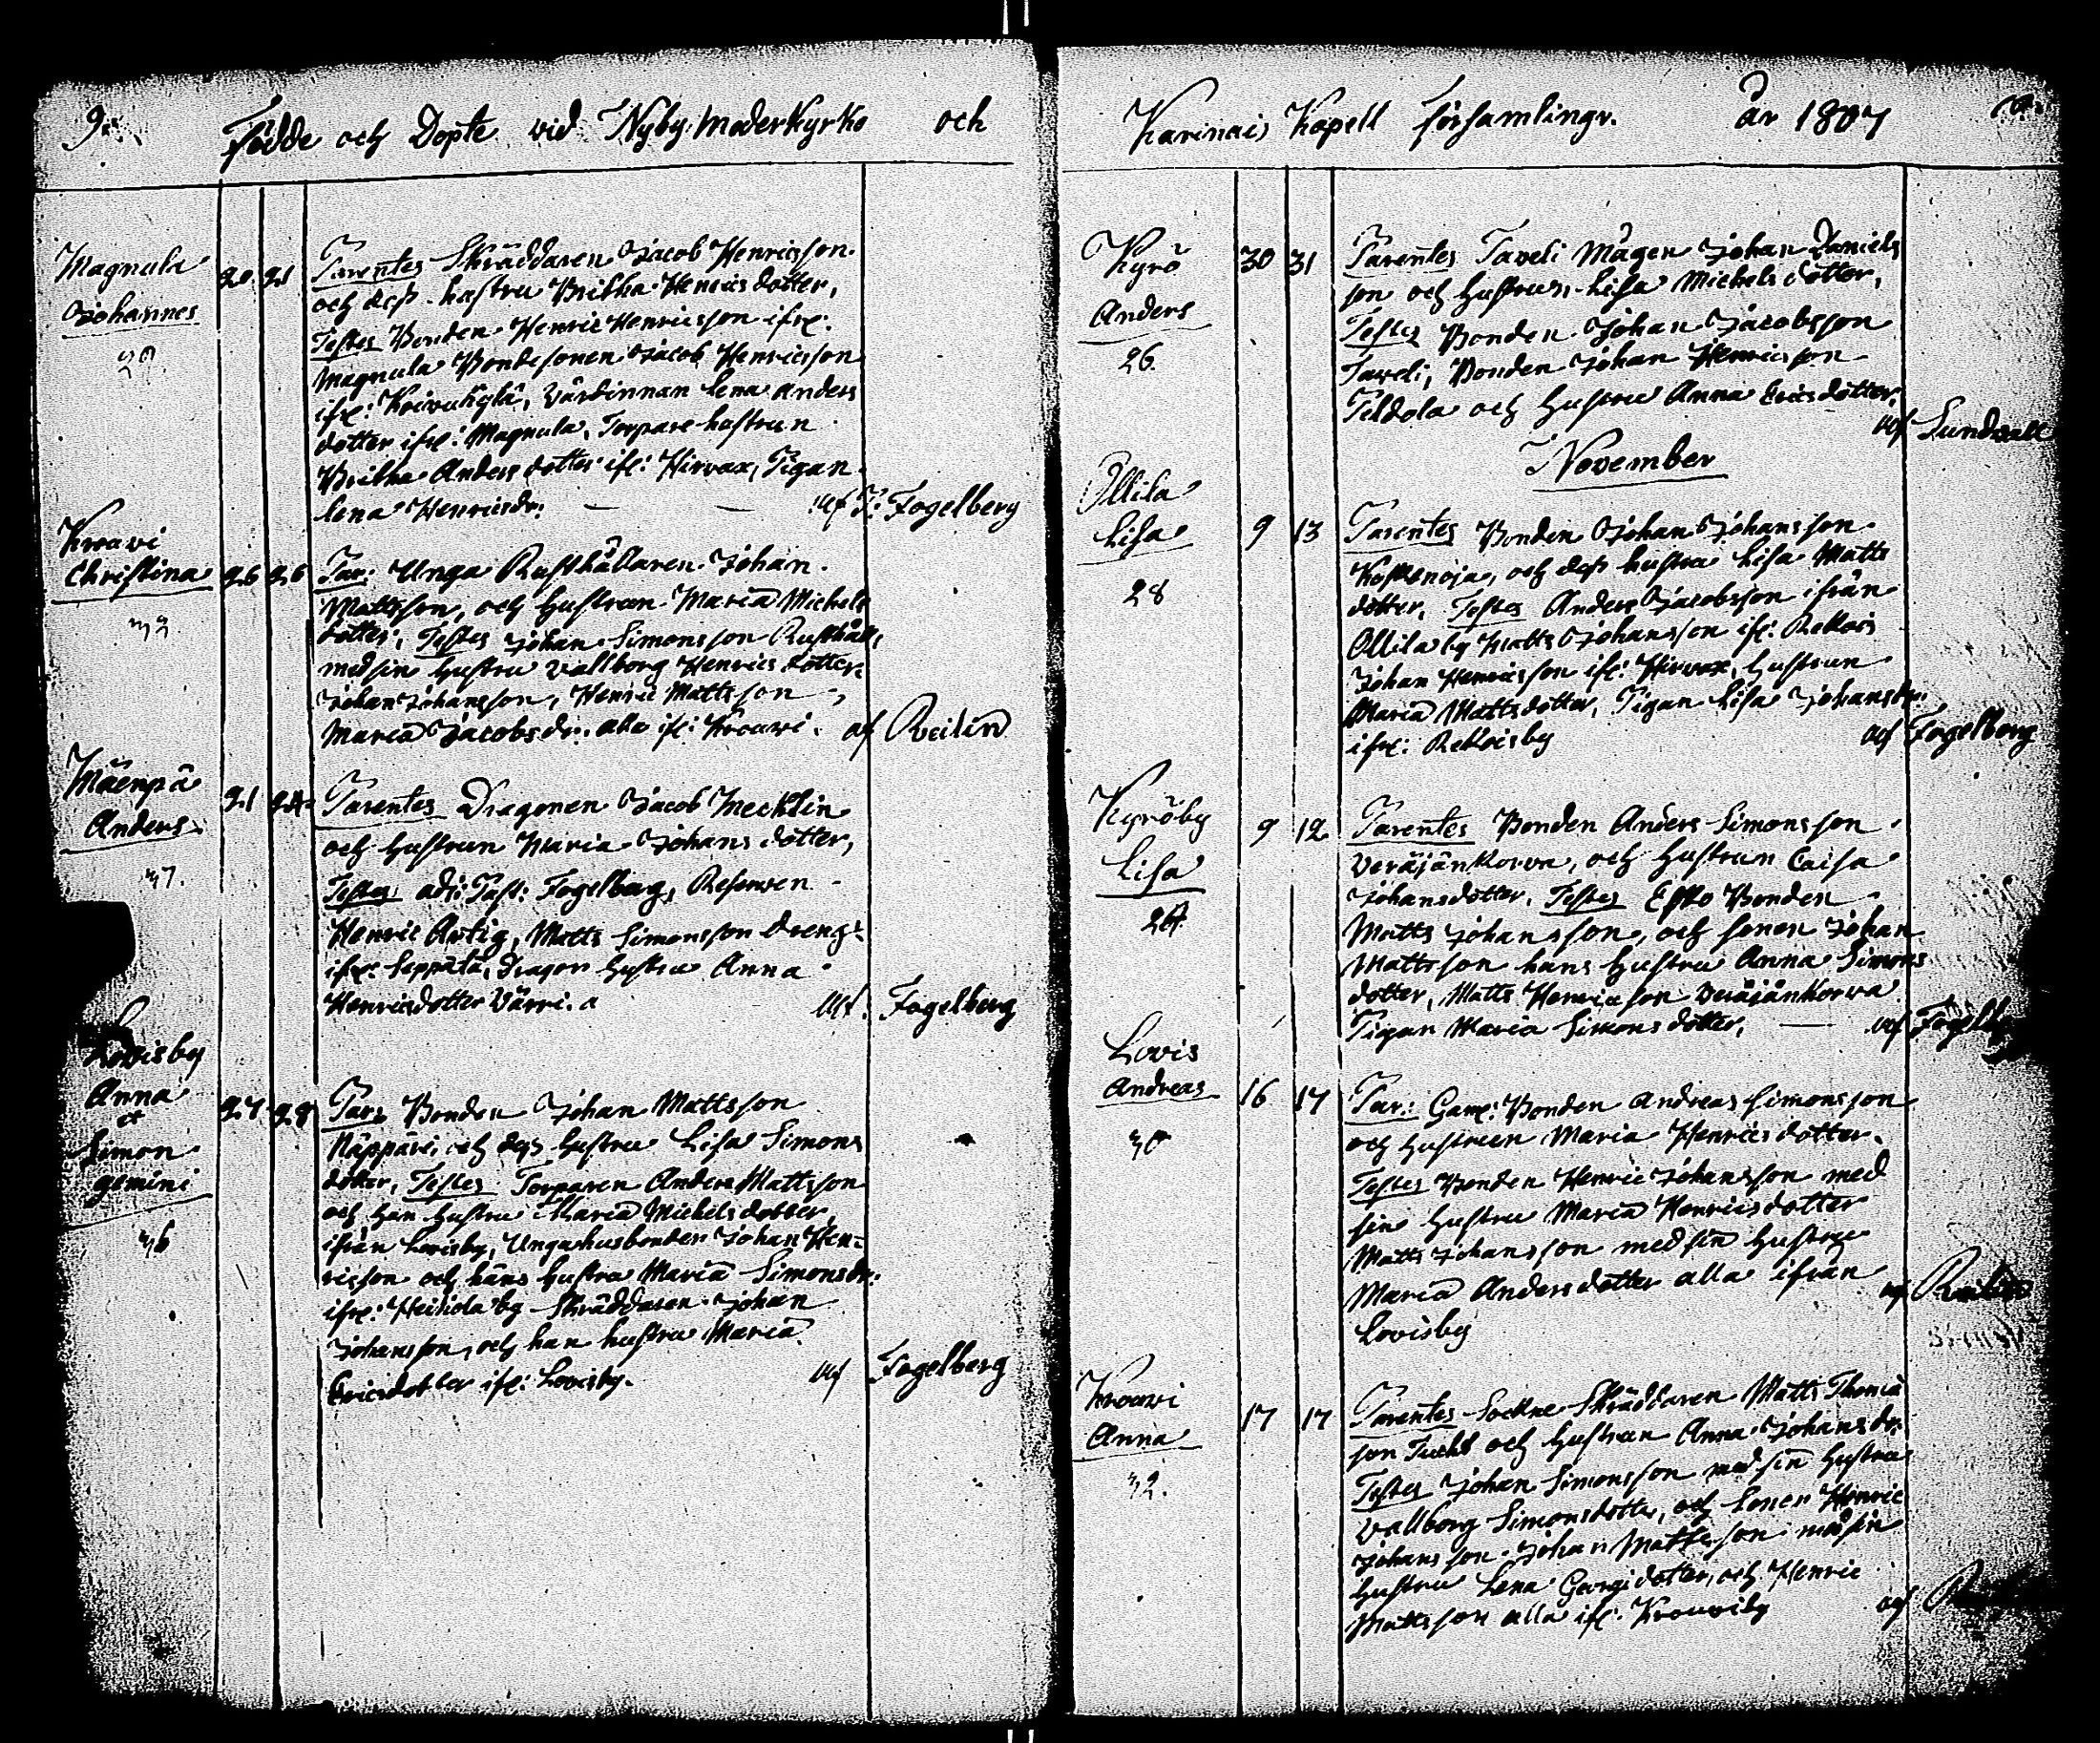 Födde och Döpte vid Nyby Moderkyrko och
Magnula
Johannes
20 21
Parentes Skräddaren Jacob Henricsson
och dess hustru Britha Henricsdotter,
Testes Bonden Henric Henricsson ifr:
Magnula Bondesonen Jacob Henricsson
ifr: Koivukylä, Värdinnan Lena Anders
dotter ifr: Magnula, Torpare hustrun
Britha Andersdotter ifr: Hirvax, Pigan
Lena Henricsdr: af Fogelberg
Krouvi
Christina
26 26
Par: Unga Rusthållaren Johan
Mattsson, och hustrun Maria Michels
dotter, Testes Johan Simonsson Rusthåll:
med sin hustru Vallborg Henrics dotter
Johan Johansson, Henric Mattsson
Maria Jacobsdr: alla ifr: Krouvi. af Reilin
Mäenpä
Anders
37.
21 24
Parentes Dragonen Jacob Mecklin
och hustrun Maria Johans dotter,
Testes adj: Past: Fogelberg, Reserven
Henric Artig, Matts Simonsson dreng
ifr: Leppälä, Dragon hustru Anna
Henricsdotter Värri. af Fogelberg
Lovisby
Anna
et
Simon
gemini
36
27 28
Par: Bonden Johan Mattsson
Näppäri och dess hustru Lisa Simons
dotter, Testes Torparen Anders Mattsson
och han hustru Maria Michelsdotter
ifrån Lovisby, Unga husbonden Johan Hen-
ricsson och hans hustru Maria Simonsdr:
ifr: Heikola by Skräddaren Johan
Johansson, och han hustru Maria
Ericsdotter ifr: Lovisby. af Fogelberg
Karinais Kapell församlingr. År 1807
Kyrö
Anders
26.
30 31
Parentes Taveli Mågen Johan Daniels
son och hustrun Lisa Michelsdotter,
Testes Bonden Johan Jacobsson
Taveli, Bonden Johan Henricsson
och hustru Anna Ericsdotter.
af Sundvall
November
Ollila
Lisa
28
9 13
Parentes Bonden Johan Johansson
Koskenoja, och dess hustru Lisa Matts
dotter, Testes Anders Jacobsson ifrån
Ollila by Matts Johansson ifr: Rekois
Johan Henricsson ifr: Hirvax, hustrun
Maria Mattsdotter, Pigan Lisa Johansdr:
ifr: Rekoisby af Fogelberg
Kyröby
Lisa
24
9 12
Parentes Bonden Anders Simonsson
Veräjänkorva, och hustrun Caisa
Johansdotter, Testes Esko Bonden
Matts Johansson, och sonen Johan
Mattsson hans hustru Anna Simons
dotter, Matts Henricsson Veräjänkorva
Pigan Maria Simonsdotter, af
Lovis
Andreas
30
16 17
Par: Gam: Bonden Andreas Simonsson
och hustrun Maria Henricsdotter.
Testes Bonden Henric Johansson med
sin hustru Maria Henricsdotter
Matts Johansson med sin hustru
Maria Andersdotter alla ifrån
Lovisby
af Reilin
Krouvi
Anna
32.
17 17
Parentes Sockne Skräddaren Matts Thomas
son och hustrun Anna Johansdr:
Testes Johan Simonsson med sin hustru
Vallborg Simonsdotter, och sonen Henric
Johansson. Johan Mattsson med sin
hustru Lena Georgidotter, och Henric
Mattsson alla ifr: Krouviby af